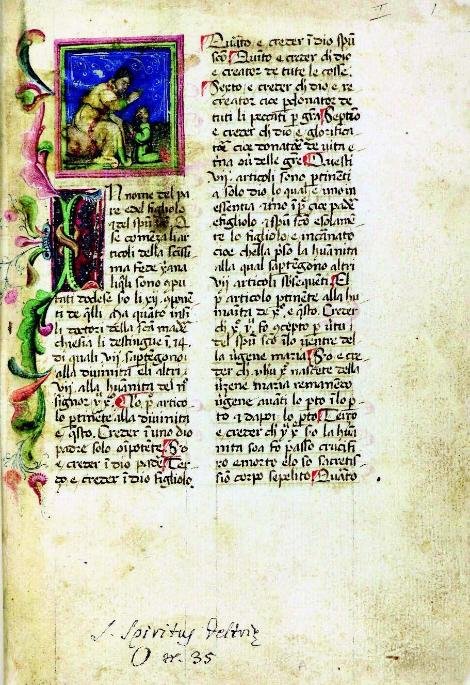 N nome del pa
re e del figliolo
q del spũ
se comẽza li ar
ticoli della sctissi
ma fede xp̃ana
li q̃li sono 9pu
tati dodese
ti de q̃lli Ma quãto insi
li doctori della scã madr̃
chiesia li destingue ĩ 14
di quali vij sup̃tegono
alla divinita eli altri
vij alla huãita del nr̃
signor y. x̃. El p̃ artico
lo ptinẽte alla divinita
e q̃sto. Creder ĩ uno dio
padre solo oĩpotẽte So
e creder ĩ dio padre Ter
ço e creder ĩ dio figliolo
Quãto e creder ĩ dio spũ
scõ Quĩto e creder ch̃ dio
e creator de tute le cosse
Sexto e creder ch̃ dio e re
creator cioe pdonator de
tuti li peccati p gr̃a Septĩo
e creder ch̃ dio e glorifica
tor̃ cioe donator̃ de vita e
t̃na
Questi
vij. articoli sono ptinẽti
a solo dio lo qual e uno in
essentia
cioe padr̃
e figliolo 2 spũ scõ e solame
te lo figliolo e incarnato
cioe
la huãnita
alla qual saptegono altri
vij articoli sbsequẽti El
p̃ articolo ptinẽte alla hu
manita de x̃. e q̃sto. Creder
ch̃ y. x̃. fo 9cepto p ṽtu
del spũ scõ ĩlo vẽtre del
la ṽgene maria So e cre
der ch̃ lui p nascere della
ṽzene maria remanẽdo
ṽgene avãti lo pto ĩ lo p
to q dapoi lo pto Terzo
e creder ch̃ y x̃ fo la huã
nita soa fo passo crucifi
xo e morto elo so sacretis
sĩo corpo sepelito Quarto
S. Spiritus
O nr. 35